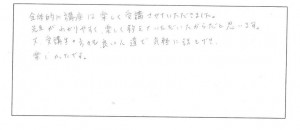 全体的に講座は楽しく受講させていただきました。
先生がわかりやすく、楽しく教えていただいたからだと思います。
又、受講する方も良い人達で気軽に話もでき、
楽しかったです。